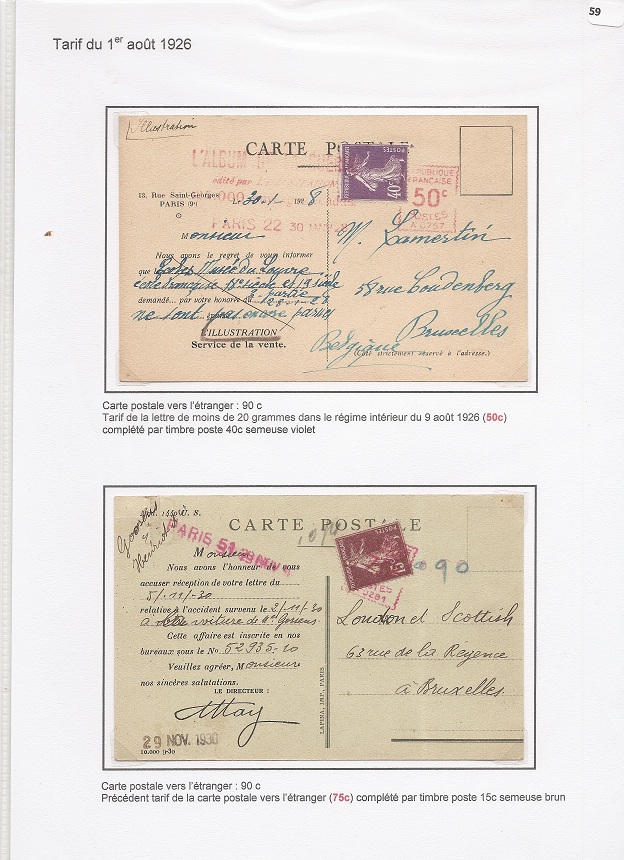 59
Tarif du 1er août 1926
L'Illustration
CARTE POSTALE
L'ALBUM DE
édité par
13, Rue Saint-Georges
PARIS (9e)
L. 30-1 1928
PARIS 22 30
POSTES
REPUBLIQUE FRANCAISE
40c
REPUBLIQUE
FRANCAISE
50c
POSTES
A 0257
Monsieur
Nous avons le regret de vous informer
que Musée du Louvre
école française siècle
demandé... par votre honorée du
ne sont pas encore
L'ILLUSTRATION
Service de la vente.
M. Lamertin
58 rue Coudenberg
Bruxelles
Belgique
(Côté strictement réservé à l'adresse.)
Carte postale vers l'étranger : 90 c
Tarif de la lettre de moins de 20 grammes dans le régime intérieur du 9 août 1926 (50c)
complété par timbre poste 40c semeuse violet
S.
CARTE POSTALE
PARIS 51
090
Monsieur
Nous avons l'honneur de vous
accuser réception de votre lettre du
5/-11/-30
relative à l'accident survenu le 2/-11/-30
a voiture de
Cette affaire est inscrite en nos
bureaux sous le No 52935-20
Veuillez agréer, Monsieur
nos sincères salutations.
LE DIRECTEUR :
29 NOV. 1930
10.000
LAPINA, IMP., PARIS
London et Scottish
63 rue de la Régence
à Bruxelles
Carte postale vers l'étranger : 90 c
Précédent tarif de la carte postale vers l'étranger (75c) complété par timbre poste 15c semeuse brun